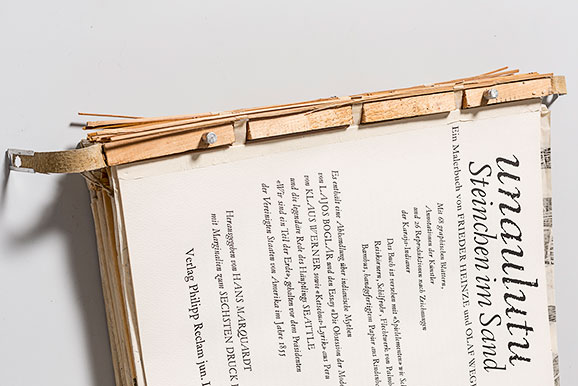 unaulutu
Steinchen im Sand
Ein Malerbuch von FRIEDER HEINZE und OLAF WEG
Mit 18 graphischen Blättern,
Annotationen der Künstler
und 26 Reproduktionen nach Zeichnungen
der Karaja-Indianer
Das Buch ist versehen mit »Spielelementen« wie
Reiskörnern, Schilfrohr, Flechtwerk von
Bambus, handgefertigtem Papier aus
Es enthält eine Abhandlung über indianische Mythen
von LAJOS BOGLAR und den Essay »Die Obsession der
von KLAUS WERNER sowie »Ketschua-Lyrik« aus Peru
und die legendäre Rede des Häuptlings SEATTLE
»Wir sind ein Teil der Erde«, gehalten vor dem Präsidenten
der Vereinigten Staaten von Amerika im Jahre 1855
Herausgegeben von HANS MARQUARDT
mit Marginalien zum SECHSTEN DRUCK
Verlag Philipp Reclam jun.